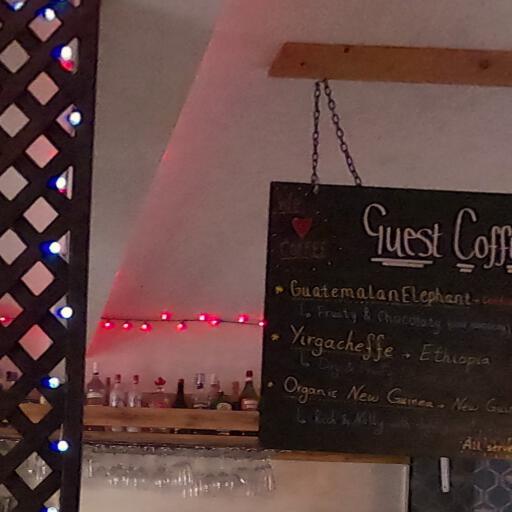 We
COFFEE
Guest Coff
Guatemalan Elephant
↳ Fruity & Chocolaty
Yirgacheffe → Ethiopia
Organic New Guinea → New Gui
↳ Rich & Nutty
All serve